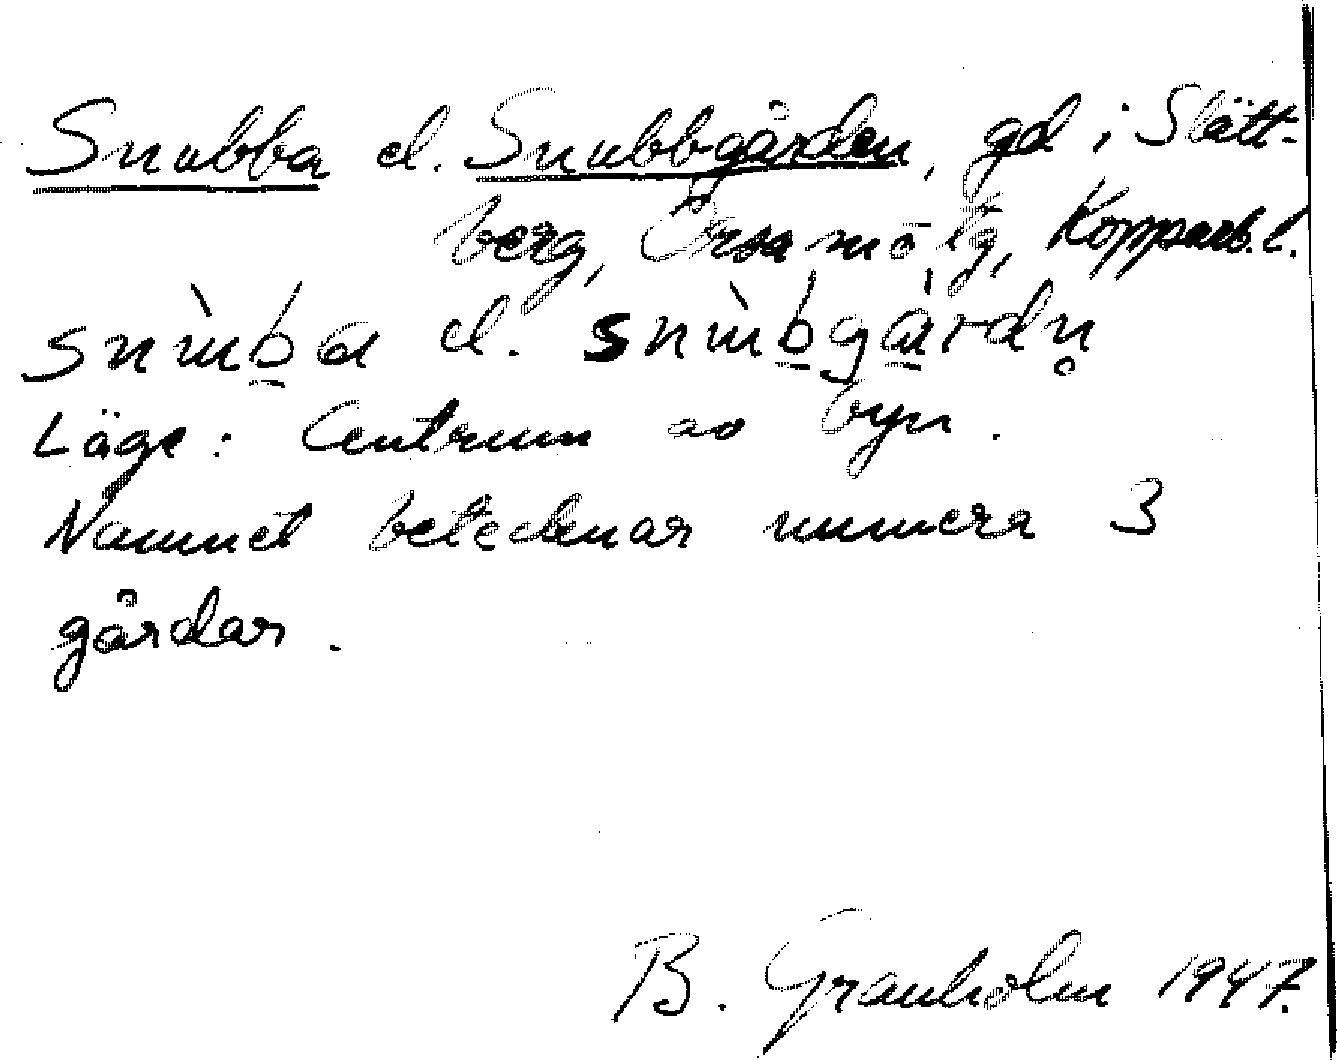 Snubba el. Snubbgården, gd i Slätt-
berg, Orsa m ö lg, Kopparb. l.
snùb̲a el. snùb̲gá̲rdn̥
Läge: Centrum av byn.
Namnet betecknar numera 3
gårdar.
B. Granholm 1947.